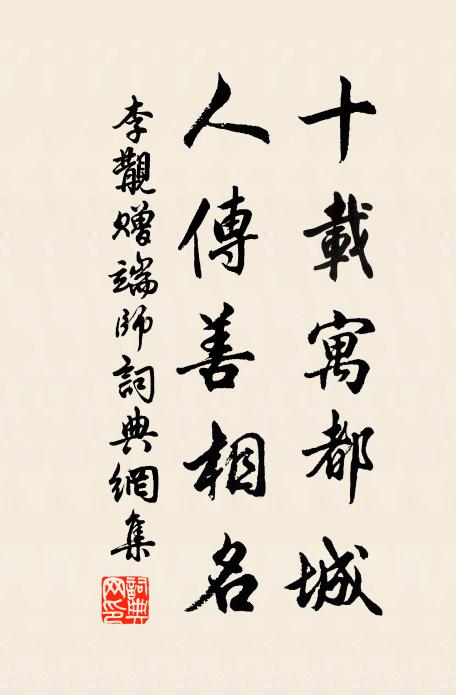 十載寓都城
人傳善相名
李覯贈端師詞典網集
詞典網印